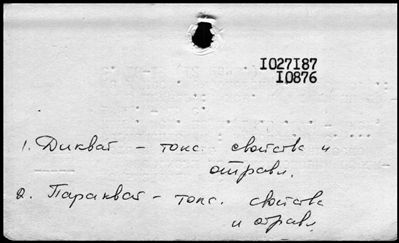 I027I87
I0876
1. Дикват – токс. свойства и
отравл.
2. Паракват – токс. свойства
и отравл.